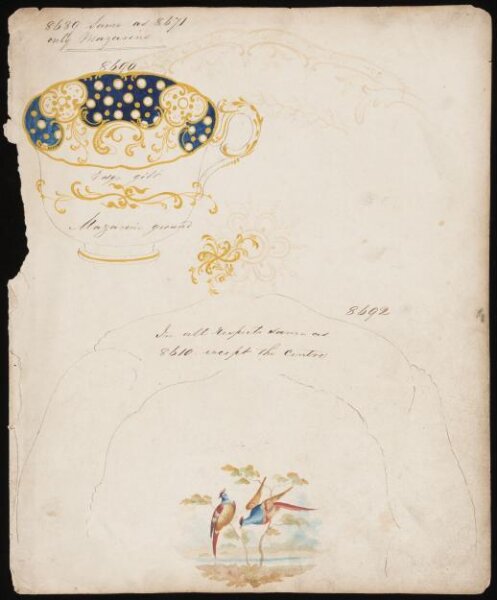 8689 Same as 8671
only Mazarine
8690
gilt
Mazarine ground
8692
In all respects same as
8610 except the Centre